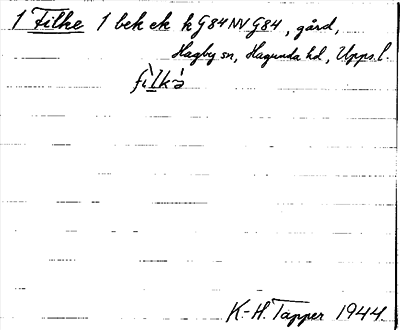 1 Filke 1 bek ek k G84NV G84, gård,
Hagby sn, Hagunda hd, Upps.l.
fìlkə̀
K.-H. Tapper 1944.